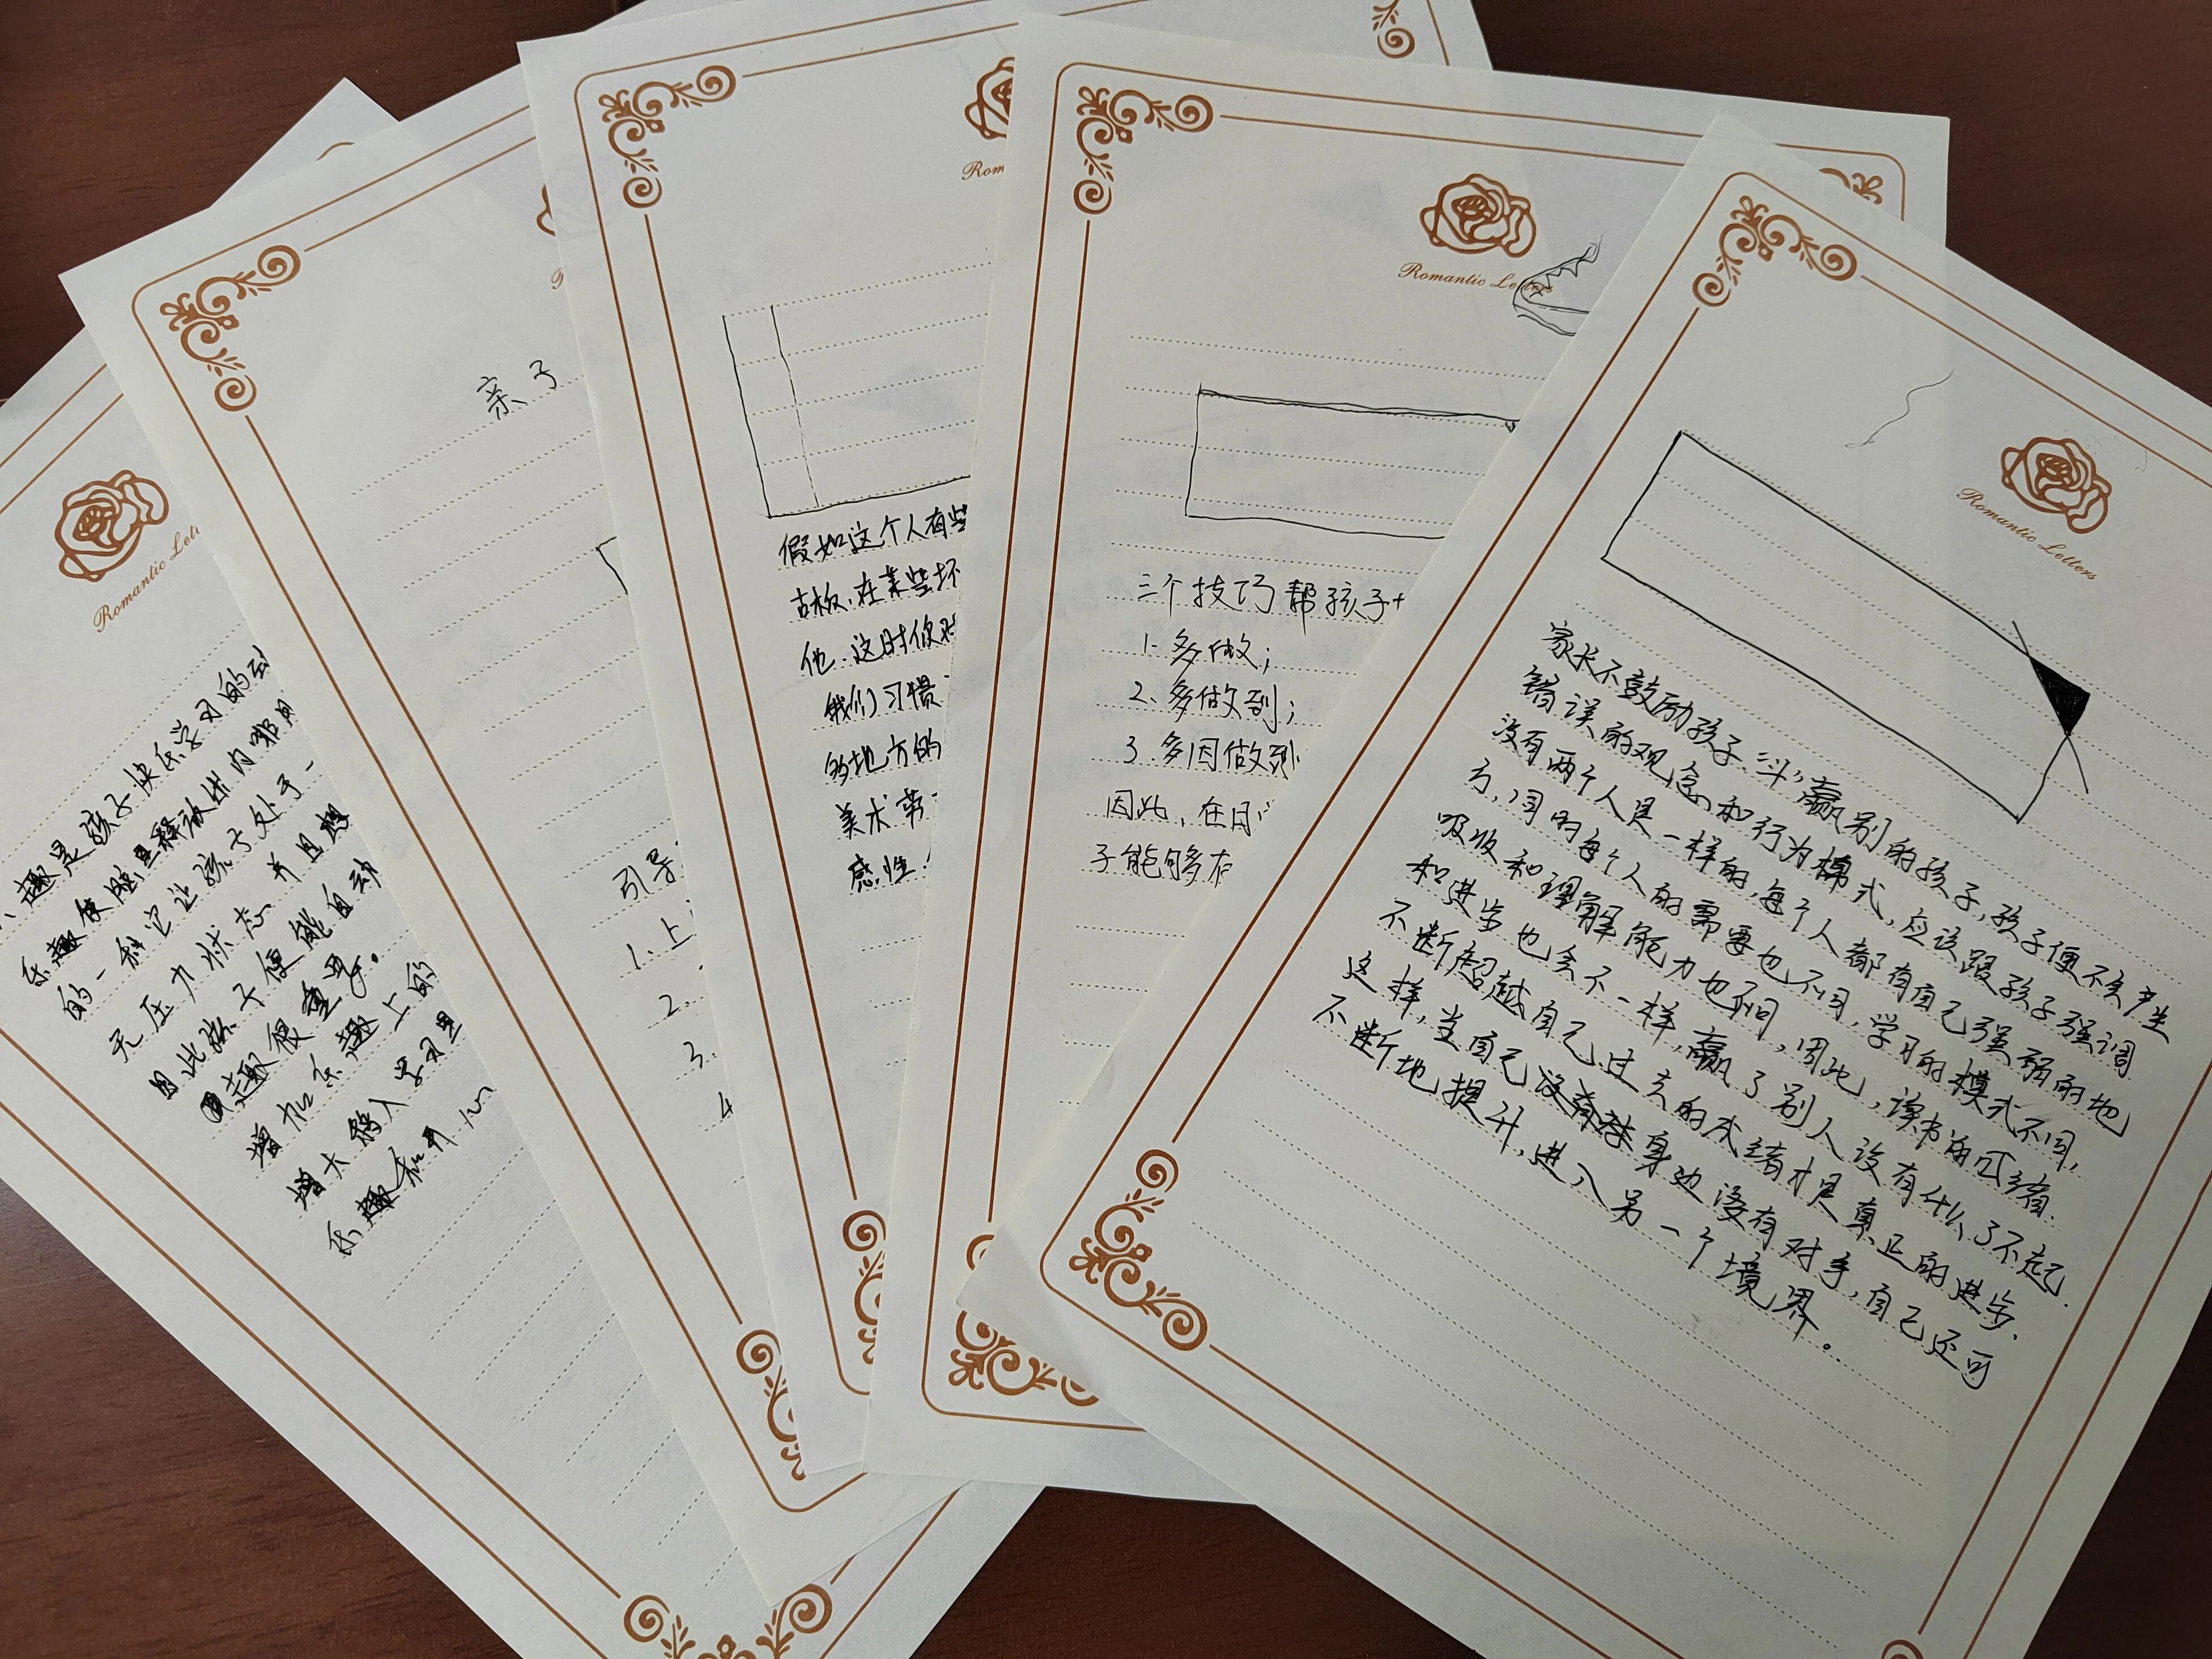 Romantic Lett
趣是孩子快乐学习的动
乐趣使脑里释放出内啡
的一种它让孩子处于一
无压力状态,并且想
因此孩子便能自动
趣很重要。
增加乐趣上的
增大
学习里
乐趣和
亲子
引导
1.上
2.
3.
4
Rom
假如这个人有些
古板,在某些坏
他.这时你
我们习惯
多地方的
美术
感性.
Romantic Letters
三个技巧帮孩子
1.多做;
2.多做到;
3.多因做到
因此,在日
子能够多有
Romantic Letters
家长不鼓励孩子"斗,赢别的孩子,孩子便不会产生
错误的观念和行为模式,应该跟孩子强调
没有两个人是一样的,每个人都有自己强弱的地
方,因为每个人的需要也不同,学习的模式不同,
吸收和理解能力也不同,因此,读书的成绩
和进步也会不一样,赢了别人没有什么了不起.
不断超越自己过去的成绩才是真正的进步.
这样,当自己没有在身边没有对手,自己还可
不断地提升,进入另一个境界。